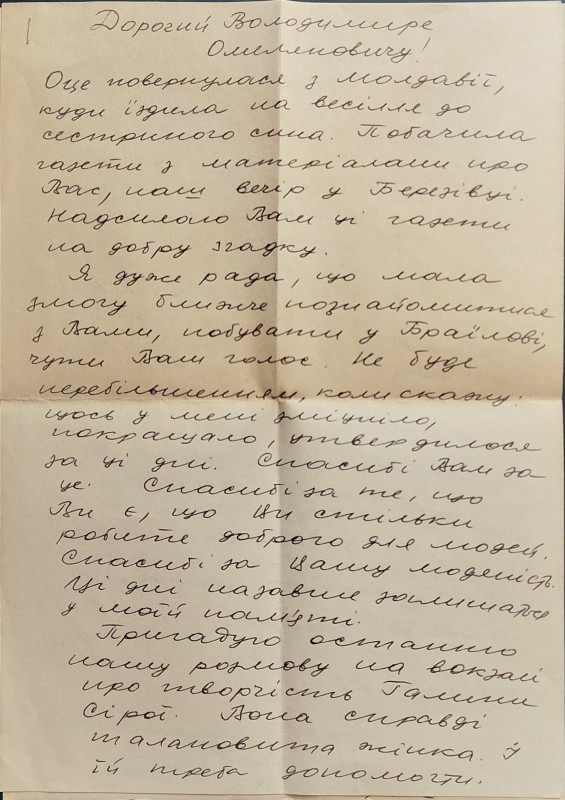 Дорогий Володимире
Омеляновичу!
Оце повернулася з Молдавії,
куди їздила на весілля до
сестриного сина. Побачила
газети з матеріалами про
Вас, наш вечір у Березівці.
Надсилаю Вам ці газети
на добру згадку.
Я дуже рада, що мала
змогу ближче познайомитися
з Вами, побувати у Браїлові,
чути Ваш голос. Не буде
перебільшенням, коли скажу:
щось у мені зміцніло,
покращало, утвердилося
за ці дні. Спасибі Вам за
це. Спасибі за те, що
Ви є, що Ви стільки
робите доброго для людей.
Спасибі за Вашу людяність.
Ці дні назавше залишаться
у моїй пам'яті.
Пригадую останню
нашу розмову на вокзалі
про творчість Галини
Сірої. Вона справді
талановита жінка. І
їй треба допомогти.